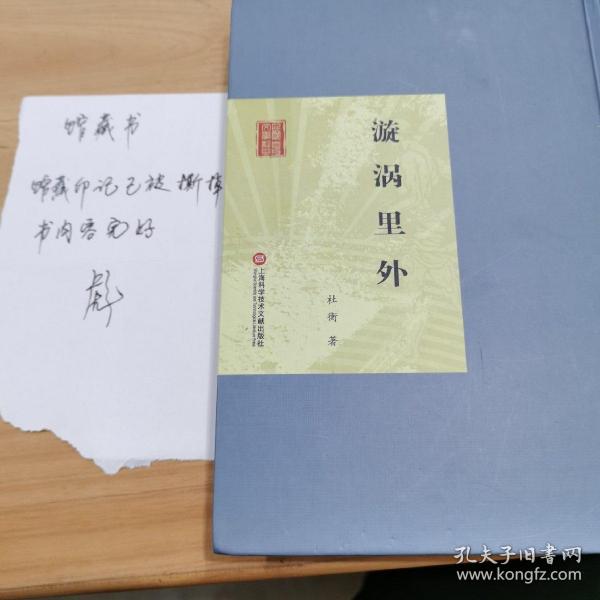 馆藏书
馆藏印记已被撕掉
书内容完好
漩涡里外
杜衡 著
上海科学技术文献出版社
孔夫子旧书网
www.kongfz.com